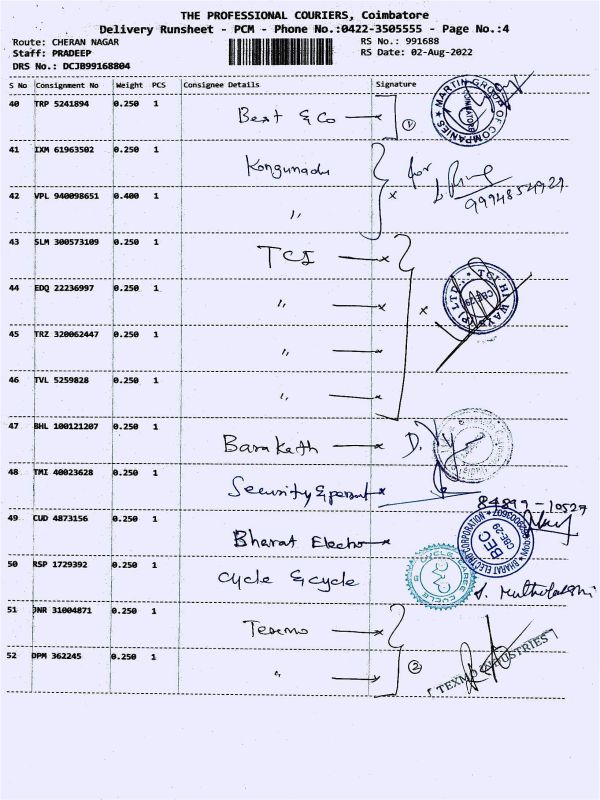 THE PROFESSIONAL COURIERS, Coimbatore
Delivery Runsheet - PCM - Phone No.:0422-3505555 - Page No.:4
Route: CHERAN NAGAR RS No.: 991688
Staff: PRADEEP RS Date: 02-Aug-2022
DRS No.: DCJB99168804
S No Consignment No Weight PCS Consignee Details Signature
40 TRP 5241894 0.250 1 Best & Co ① MARTIN GROUP OF COMPANIES COIMBATORE
41 IXM 61963502 0.250 1 Kongunadu for
42 VPL 940098651 0.400 1 〃
43 SLM 300573109 0.250 1 TCI
44 EDQ 22236997 0.250 1 〃 CBE-29
45 TRZ 320062447 0.250 1 〃
46 TVL 5259828 0.250 1 〃
47 BHL 100121207 0.250 1 Barakath D.
48 TMI 40023628 0.250 1 Security
84899-10529
49 CUD 4873156 0.250 1 Bharat Electro BHARAT ELECTRO CORPORATION BEC CBE-29
50 RSP 1729392 0.250 1 Cycle & cycle
51 JNR 31004871 0.250 1 Texmo
52 DPM 362245 0.250 1 〃 ② TEXMO INDUSTRIES